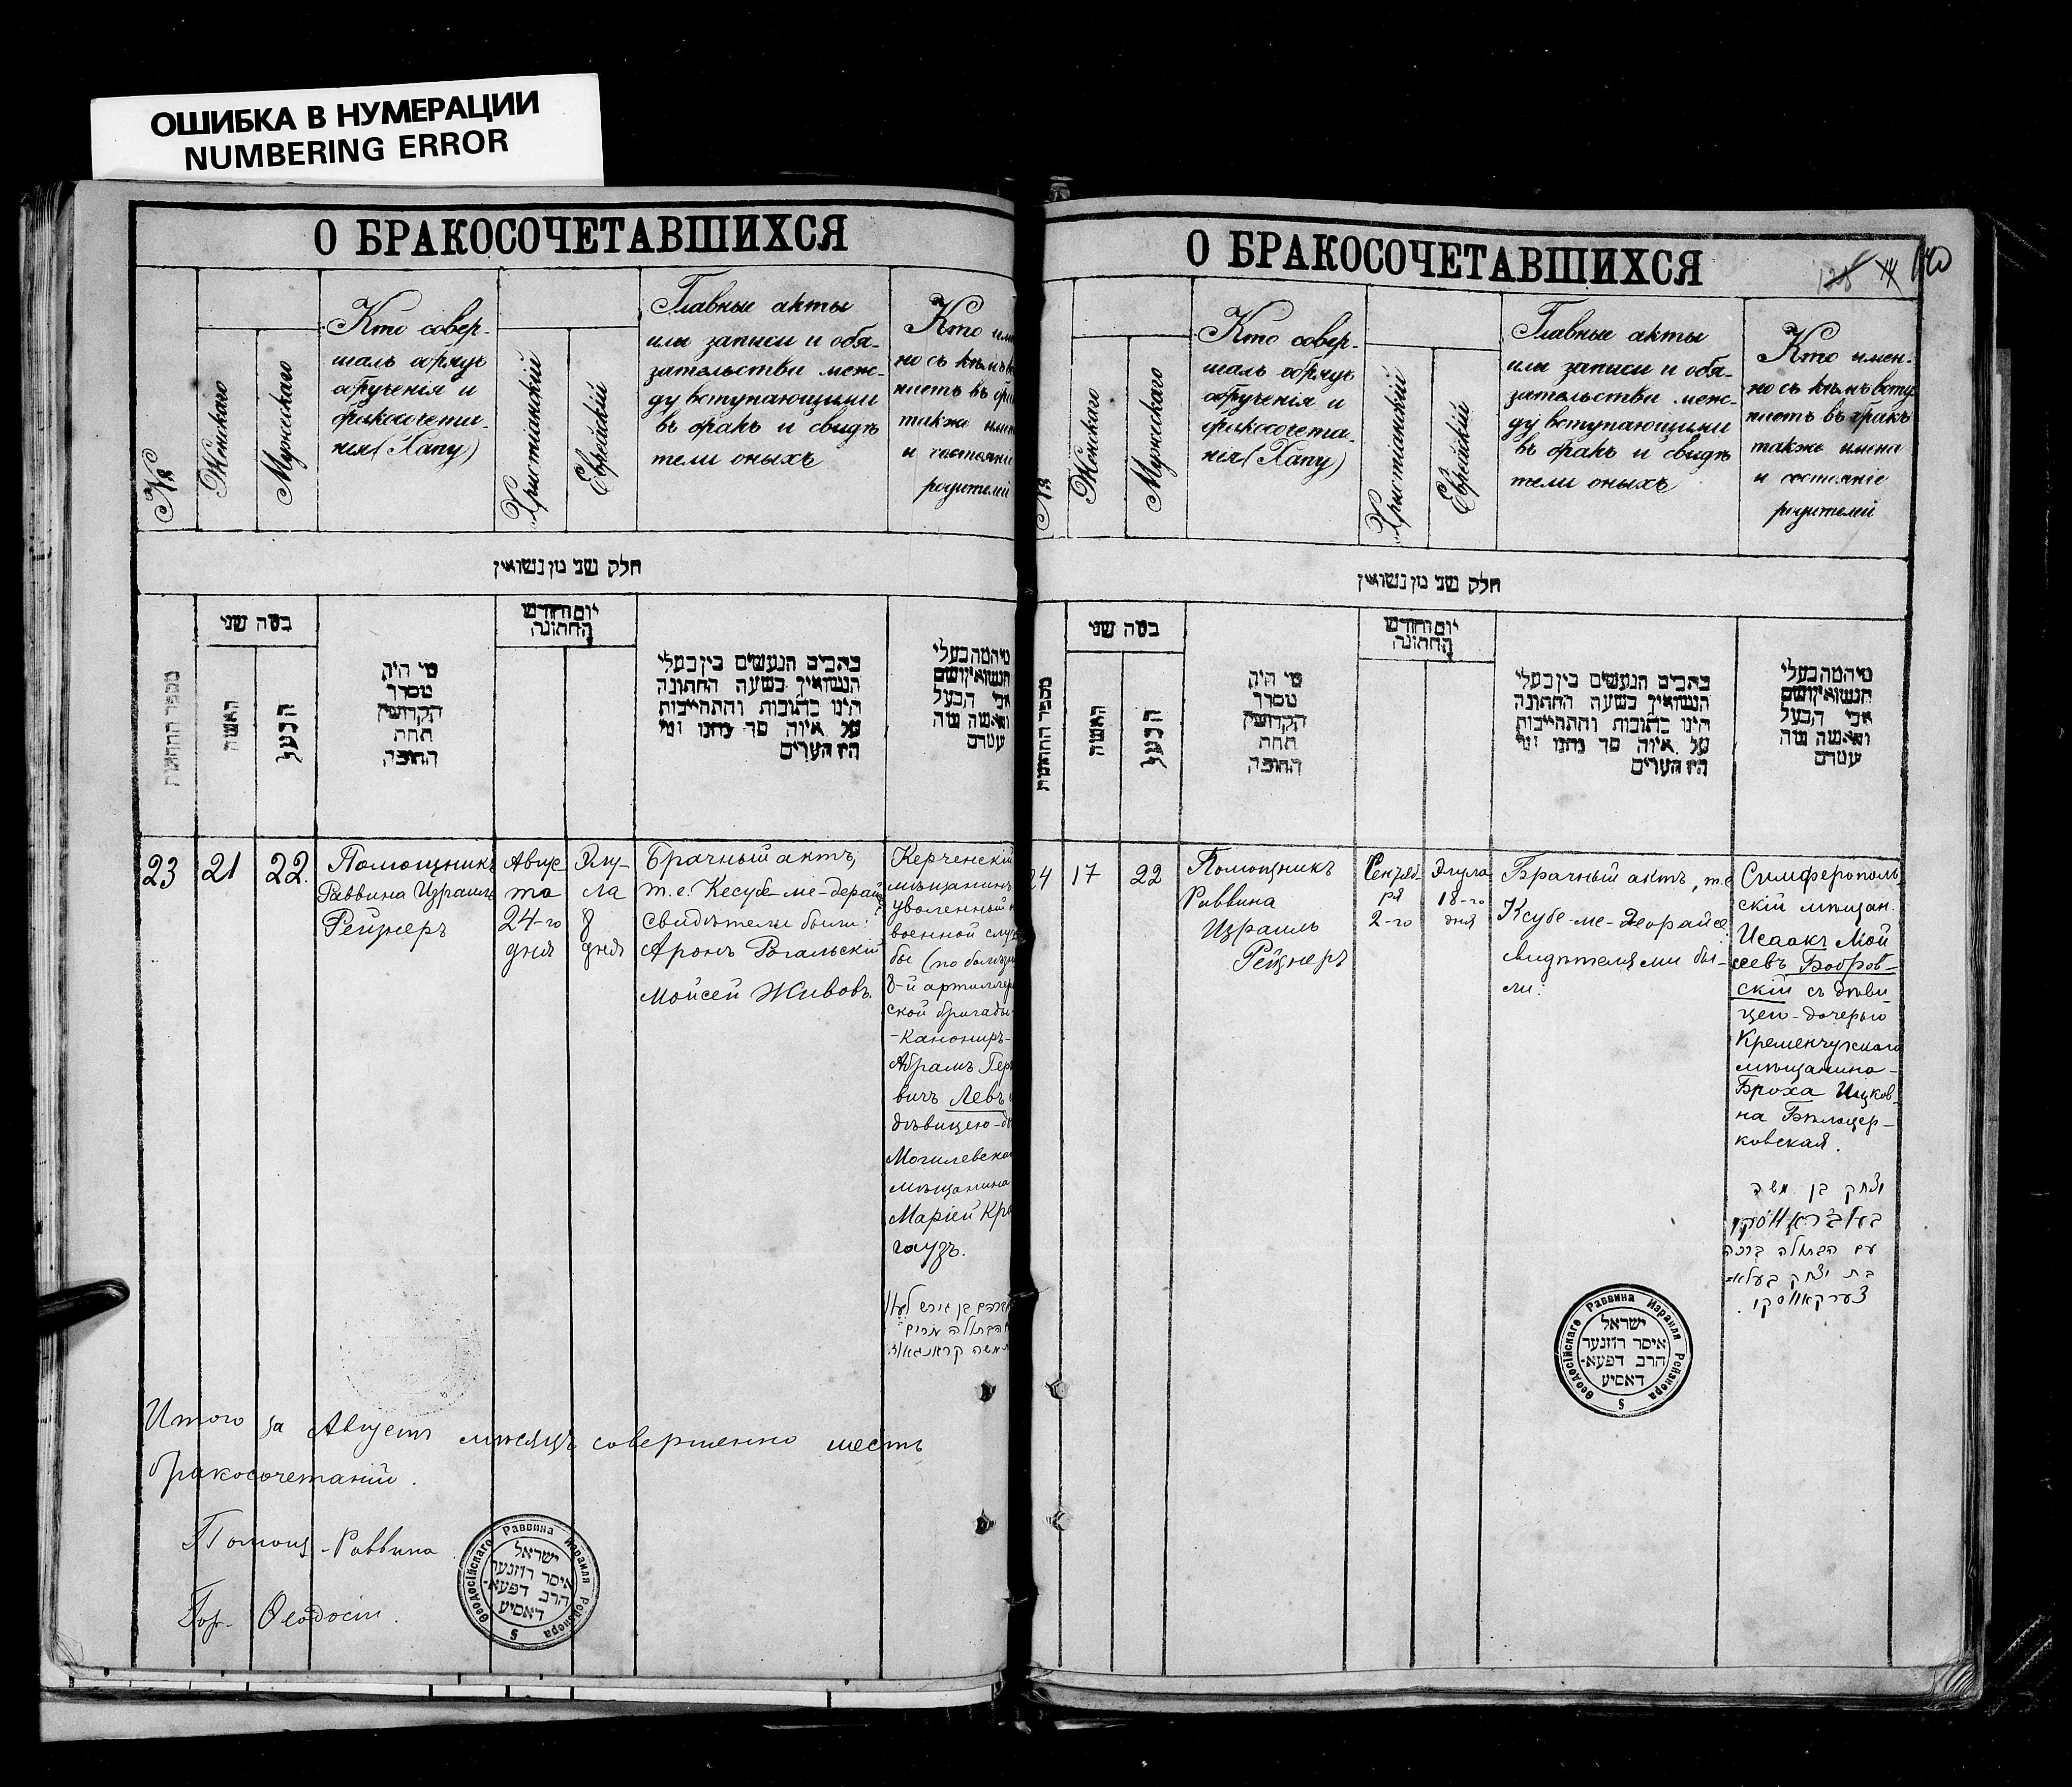 ОШИБКА В НУМЕРАЦИИ
NUMBERING ERROR
О БРАКОСОЧЕТАВШИХСЯ
№
Женскаго
Мужескаго
Кто совер-
шалъ обрядъ
обрученія и
бракосочета-
нія (Хапу)
Христіанскій
Еврейскій
Главные акты
или записи и обя-
зательства меж-
ду вступающими
въ бракъ и свидѣ
тели оныхъ
Кто
но съ кѣмъ
также
и состояніе
родителей
חלק שני מן נשואין
מספר החתונות
במה שני
האשה
הבעל
מי היה
מסדר
הקדושין
תחת
החופה
יום וחודש
החתונה
כתבים הנעשים בין בעלי
הנשואין בשעה החתונה
היינו כתובות והתחייבות
על איזה סך נתנו ומי
היו העדים
מיהמה בעלי
הנשואין ושם
אבי הבעל
והאשה ומה
עמדם
23
21
22.
Помощникъ
Раввина Израиль
Рейзнеръ
Авгус
та
24-го
дня
Элу-
ла
8
дня
Брачный актъ,
т.е. Кесубе-ме-дерайсе
свидѣтели были:
Аронъ
Мойсей Живовъ.
Керченскій
мѣщанинъ
уволенный
военной служ
бы (по болѣзни
8-й артиллер
ской бригады
-канониръ-
Абрамъ Гер
вичъ Левъ
дѣвицею-
Могилевска
мѣщанина
Маріей
гаузъ.
אברהם בן
הבתולה מרים
משה
Итого за Августъ мѣсяцъ совершенно шесть
бракосочетаній.
Помощ. Раввина
Гор. Ѳеодосіи.
Ѳеодосійскаго Раввина Израиля Рейзнера
ישראל
איסר רוזנער
הרב דפעא-
דאסיע
О БРАКОСОЧЕТАВШИХСЯ
128
140
№
Женскаго
Мужескаго
Кто совер-
шалъ обрядъ
обрученія и
бракосочета-
нія (Хапу)
Христіанскій
Еврейскій
Главные акты
или записи и обя-
зательства меж-
ду вступающими
въ бракъ и свидѣ
тели оныхъ
Кто имен-
но съ кѣмъ всту
паетъ въ бракъ
также имена
и состояніе
родителей
חלק שני מן נשואין
מספר החתונות
במה שני
האשה
הבעל
מי היה
מסדר
הקדושין
תחת
החופה
יום וחודש
החתונה
כתבים הנעשים בין בעלי
הנשואין בשעה החתונה
היינו כתובות והתחייבות
על איזה סך נתנו ומי
היו העדים
מיהמה בעלי
הנשואין ושם
אבי הבעל
והאשה ומה
עמדם
24
17
22
Помощникъ
Раввина
Израиль
Рейзнеръ
Сентяб-
ря
2-го
Элула
18-го
дня
Брачный актъ, т.е
Ксубе-ме-Деорайсе
свидѣтелями бы-
ли:
Симферополь-
скій мѣщан.
Исаакъ Мой
сеевъ Бобров-
скій съ дѣви
цей-дочерью
Кременчугскаго
мѣщанина-
Броха Ицков-
на Бѣлоцер-
ковская.
יצחק בן משה
באבראווסקי
עם הבתולה ברכה
בת יצחק בעלא-
צערקאווסקי.
Ѳеодосійскаго Раввина Израиля Рейзнера
ישראל
איסר רוזנער
הרב דפעא-
דאסיע